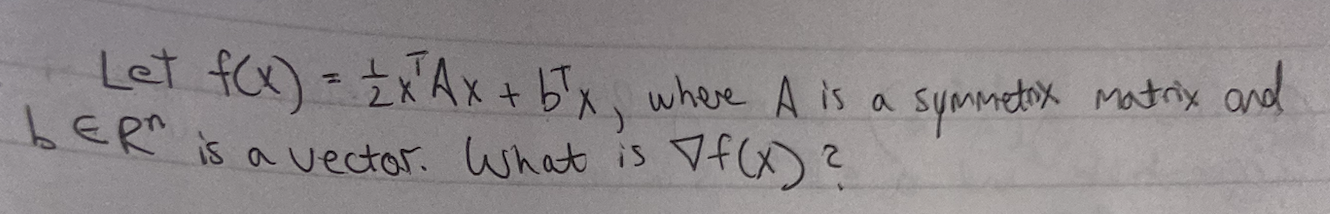 Let f(x) = ½xᵀAx + bᵀx, where A is a symmetrix matrix and
b ∈ Rⁿ is a vector. What is ∇f(x)?